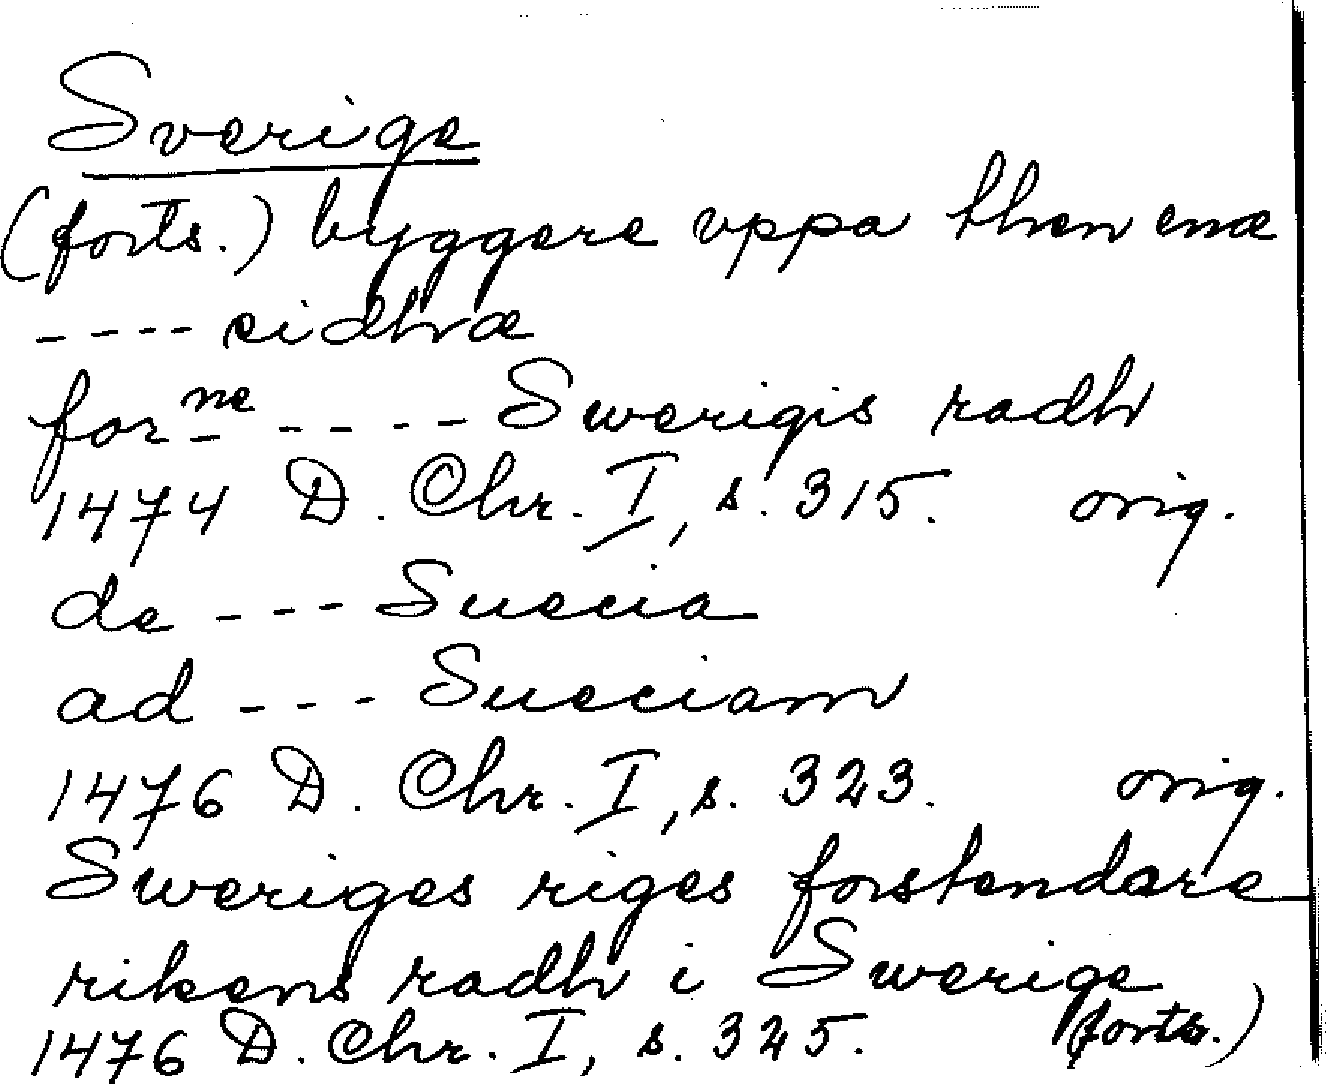 Sverige
(forts.) byggere vppa then enæ
---- sidhræ
forne ---- Swerigis radh
1474 D. Chr. I, s. 315. orig.
de --- Suecia
ad --- Sueciam
1476 D. Chr. I, s. 323. orig.
Sweriges riges forstendare
rikens radh i Swerige
1476 D. Chr. I, s. 325. forts.)